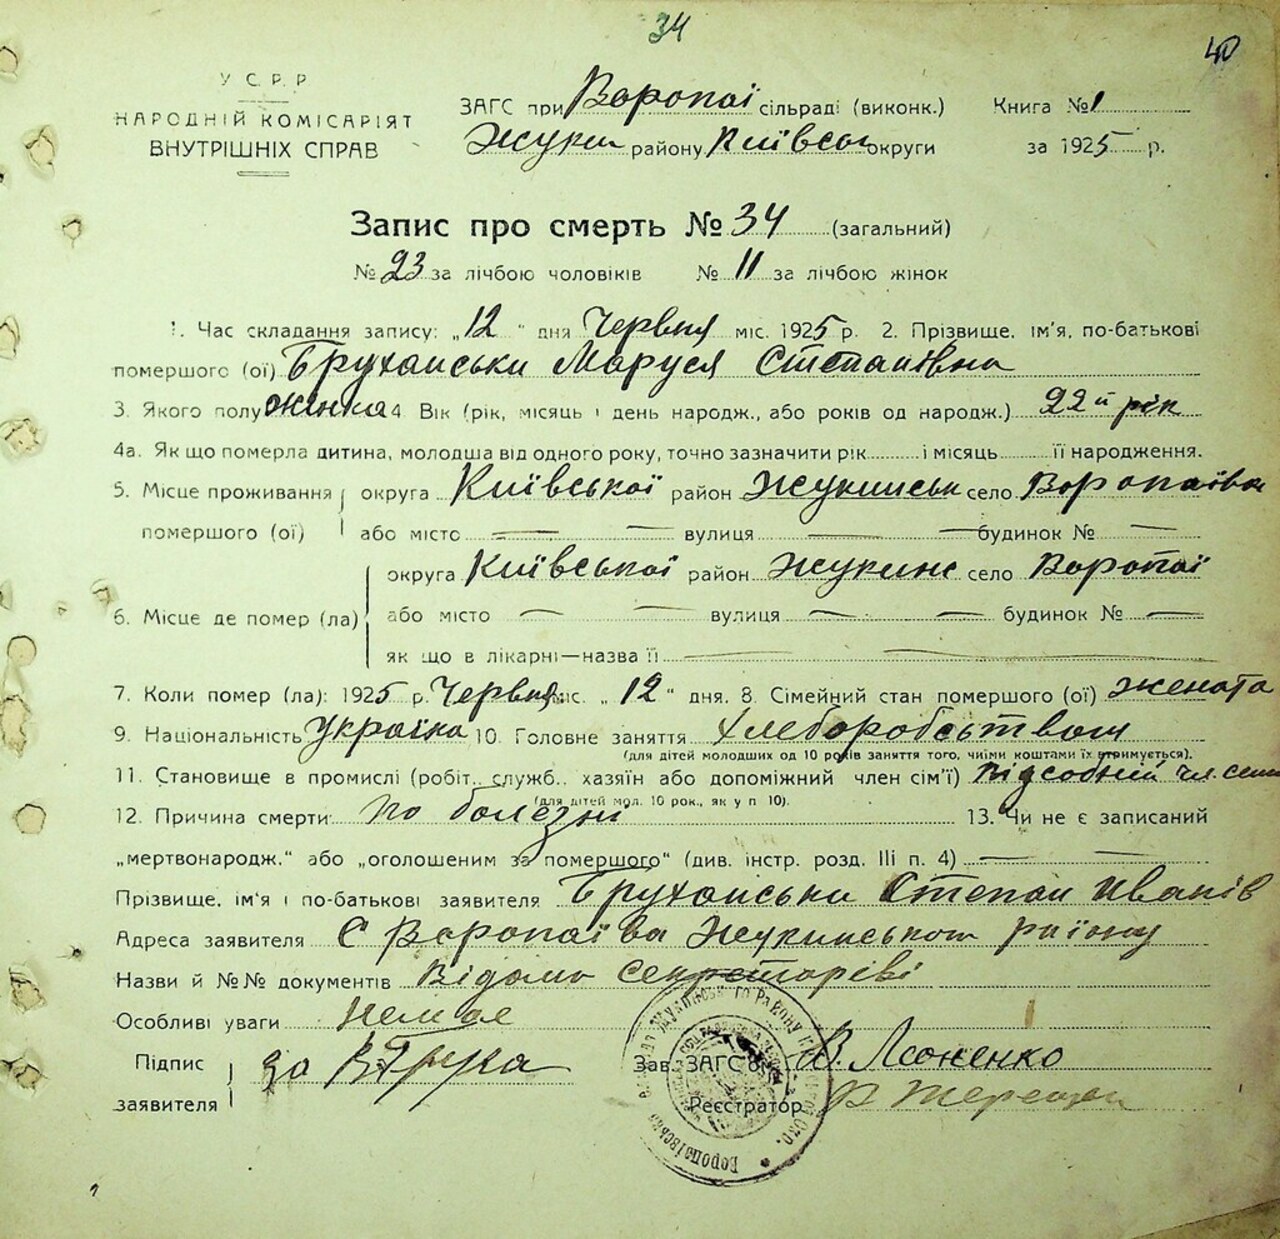 34
40
У С. Р. Р
НАРОДНІЙ КОМІСАРІЯТ
ВНУТРІШНІХ СПРАВ
ЗАГС при Воропаї сільраді (виконк.) Книга № 1
Жукин району Київськ округи за 1925 р.
Запис про смерть № 34 (загальний)
№ 23 за лічбою чоловіків № 11 за лічбою жінок
1. Час складання запису: „12" дня Червня міс. 1925 р. 2. Прізвище, ім'я, по-батькові
помершого (ої) Бруханськи Маруся Степанівна
3. Якого полу жінка 4 Вік (рік, місяць і день народж., або років од народж.) 22й рік
4а. Як що померла дитина, молодша від одного року, точно зазначити рік і місяць її народження.
5. Місце проживання округа Київської район Жукинськ село Воропаївка
помершого (ої) або місто — — вулиця — — будинок № —
округа Київської район Жукинс село Воропаї
6. Місце де помер (ла) або місто — — вулиця — — будинок № —
як що в лікарні—назва її — —
7. Коли помер (ла): 1925 р. Червня міс. „12" дня. 8. Сімейний стан помершого (ої) жената
9. Національність Україна 10. Головне заняття хлеборобством
(для дітей молодших од 10 років заняття того, чиїми коштами їх втримується).
11. Становище в промислі (робіт., служб., хазяїн або допоміжний член сім'ї) підсобній чл. семи
(для дітей мол. 10 рок., як у п 10).
12. Причина смерти по болезні 13. Чи не є записаний
„мертвонародж." або „оголошеним за помершого" (див. інстр. розд. III п. 4) — —
Прізвище, ім'я і по-батькові заявителя Бруханськи Степан Іванів
Адреса заявителя С Воропаївка Жукинського району
Назви й №№ документів Відомо секретареві
Особливі уваги Немає
Підпис за
Зав. ЗАГС'ом В.
заявителя Реєстратор В